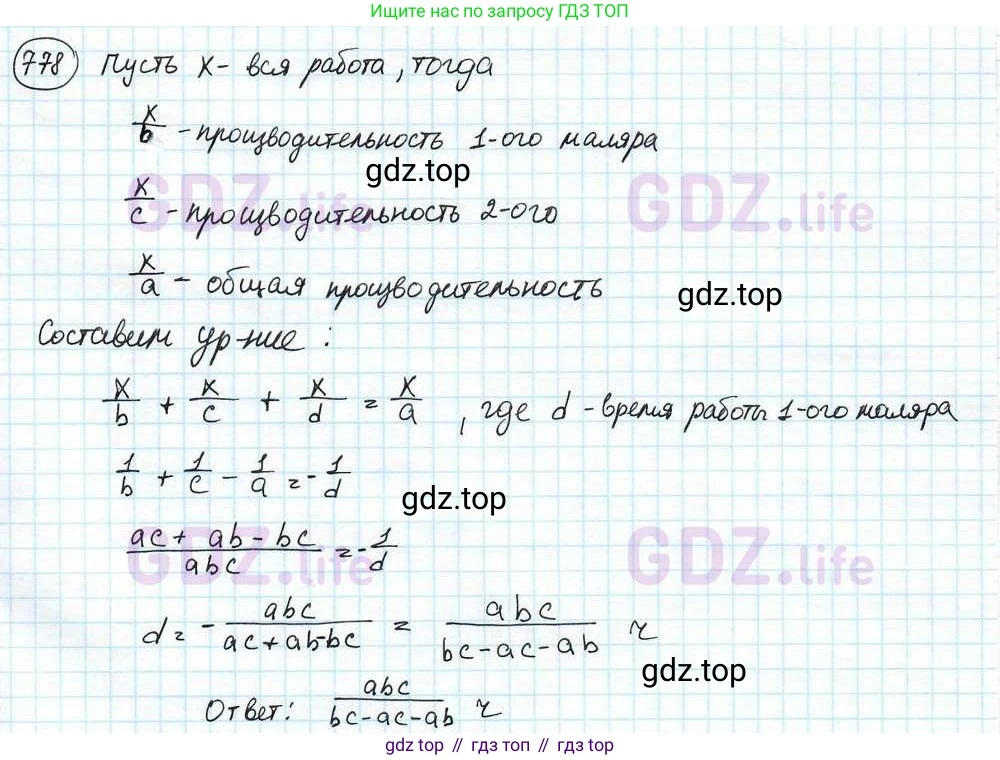 Ищите нас по запросу ГДЗ ТОП
778 Пусть x - вся работа, тогда
x/b - производительность 1-ого маляра
gdz.top
GDZ.life GDZ.life
x/c - производительность 2-ого
x/a - общая производительность
gdz.top
Составим ур-ние :
x/b + x/c + x/d = x/a , где d - время работы 1-ого маляра
1/b + 1/c - 1/a = - 1/d
gdz.top
(ac + ab - bc)/abc = - 1/d
GDZ.life GDZ.life
d = - abc/(ac + ab - bc) = abc/(bc - ac - ab) ч
gdz.top
Ответ: abc/(bc - ac - ab) ч
gdz top // гдз топ // gdz top